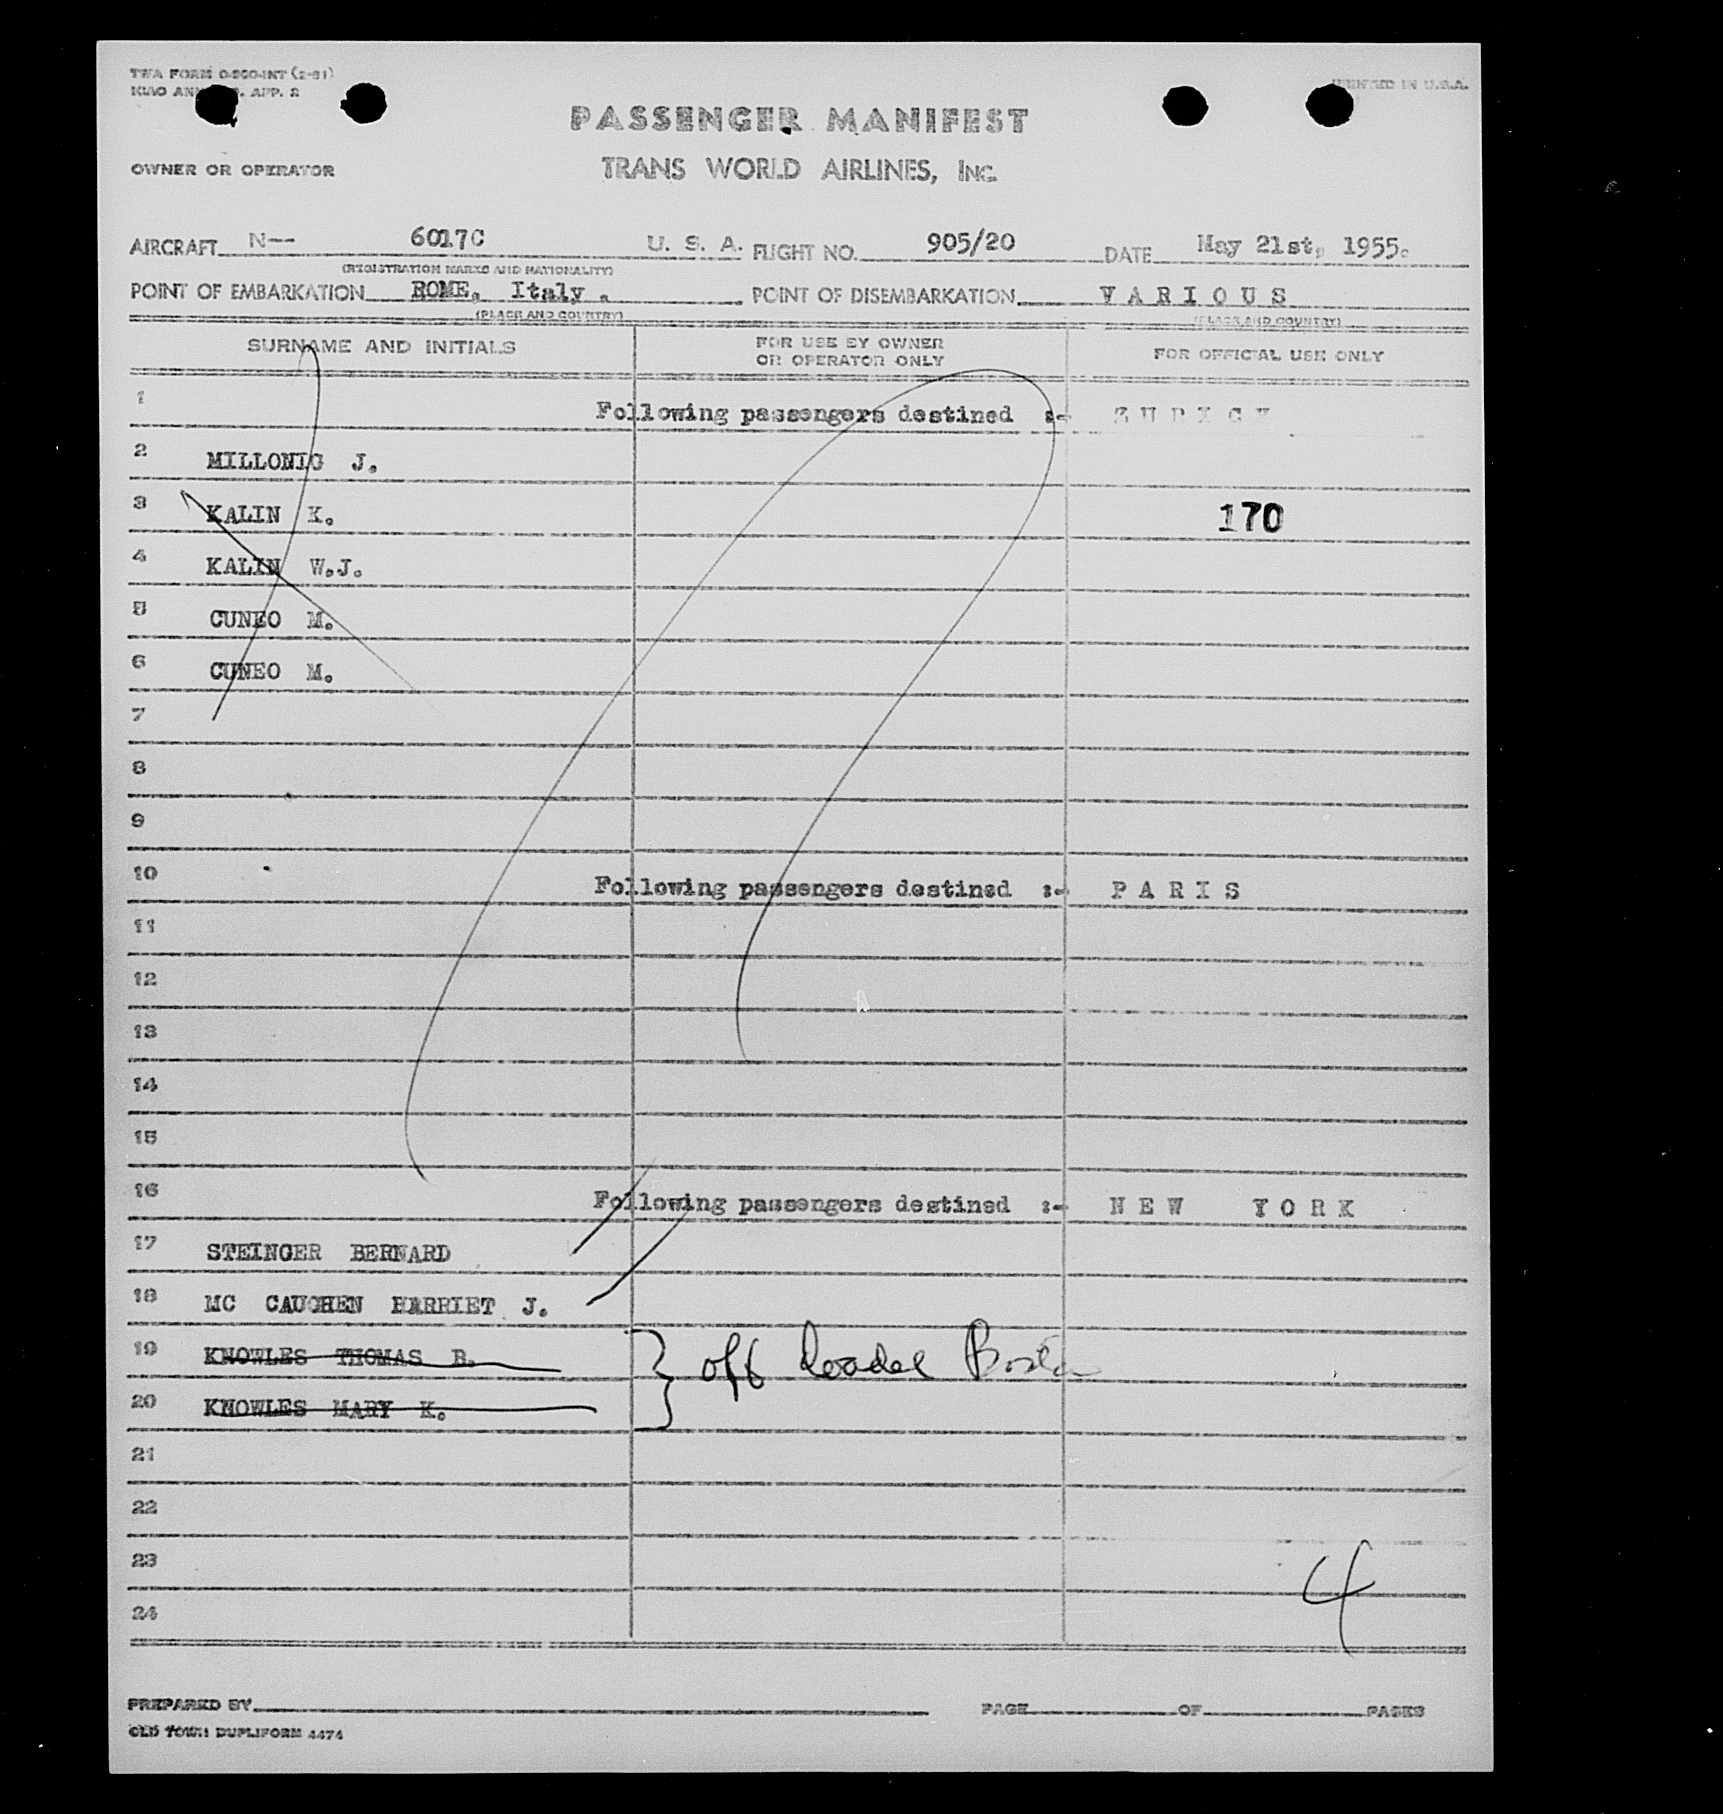 TWA FORM O-900-INT (2-51)
ICAO ANN 9. APP. 2
PRINTED IN U.S.A.
PASSENGER MANIFEST
OWNER OR OPERATOR
TRANS WORLD AIRLINES, INC.
AIRCRAFT N-- 6017C U. S. A. FLIGHT NO. 905/20 DATE May 21st, 1955.
(REGISTRATION MARKS AND NATIONALITY)
POINT OF EMBARKATION ROME, Italy . POINT OF DISEMBARKATION V A R I O U S
(PLACE AND COUNTRY) (PLACE AND COUNTRY)
SURNAME AND INITIALS FOR USE BY OWNER OR OPERATOR ONLY FOR OFFICIAL USE ONLY
1 Following passengers destined :- Z U R I C H
2 MILLONIG J.
3 KALIN K. 170
4 KALIN W.J.
5 CUNEO M.
6 CUNEO M.
7
8
9
10 Following passengers destined :- P A R I S
11
12
13
14
15
16 Following passengers destined :- N E W Y O R K
17 STEINGER BERNARD
18 MC CAUGHEN HARRIET J.
19 KNOWLES THOMAS B. } off loaded Boston
20 KNOWLES MARY K.
21
22
23
4
24
PREPARED BY PAGE OF PAGES
OLD TOWN DUPLIFORM 4474